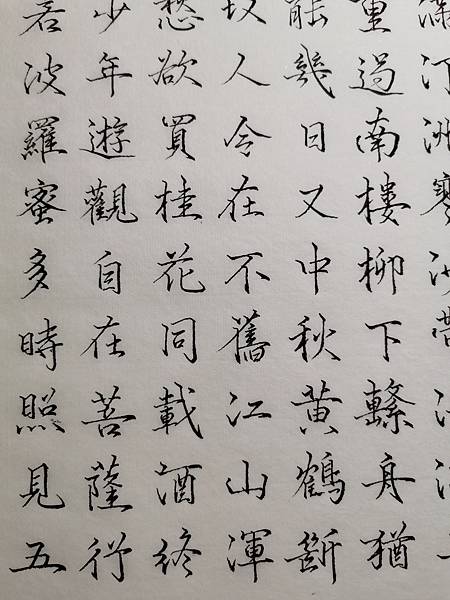 滿汀洲寒沙帶
重過南樓柳下繫舟猶
能幾日又中秋黃鶴斷
故人今在不舊江山渾
愁欲買桂花同載酒終
少年遊觀自在菩薩行
若波羅蜜多時照見五